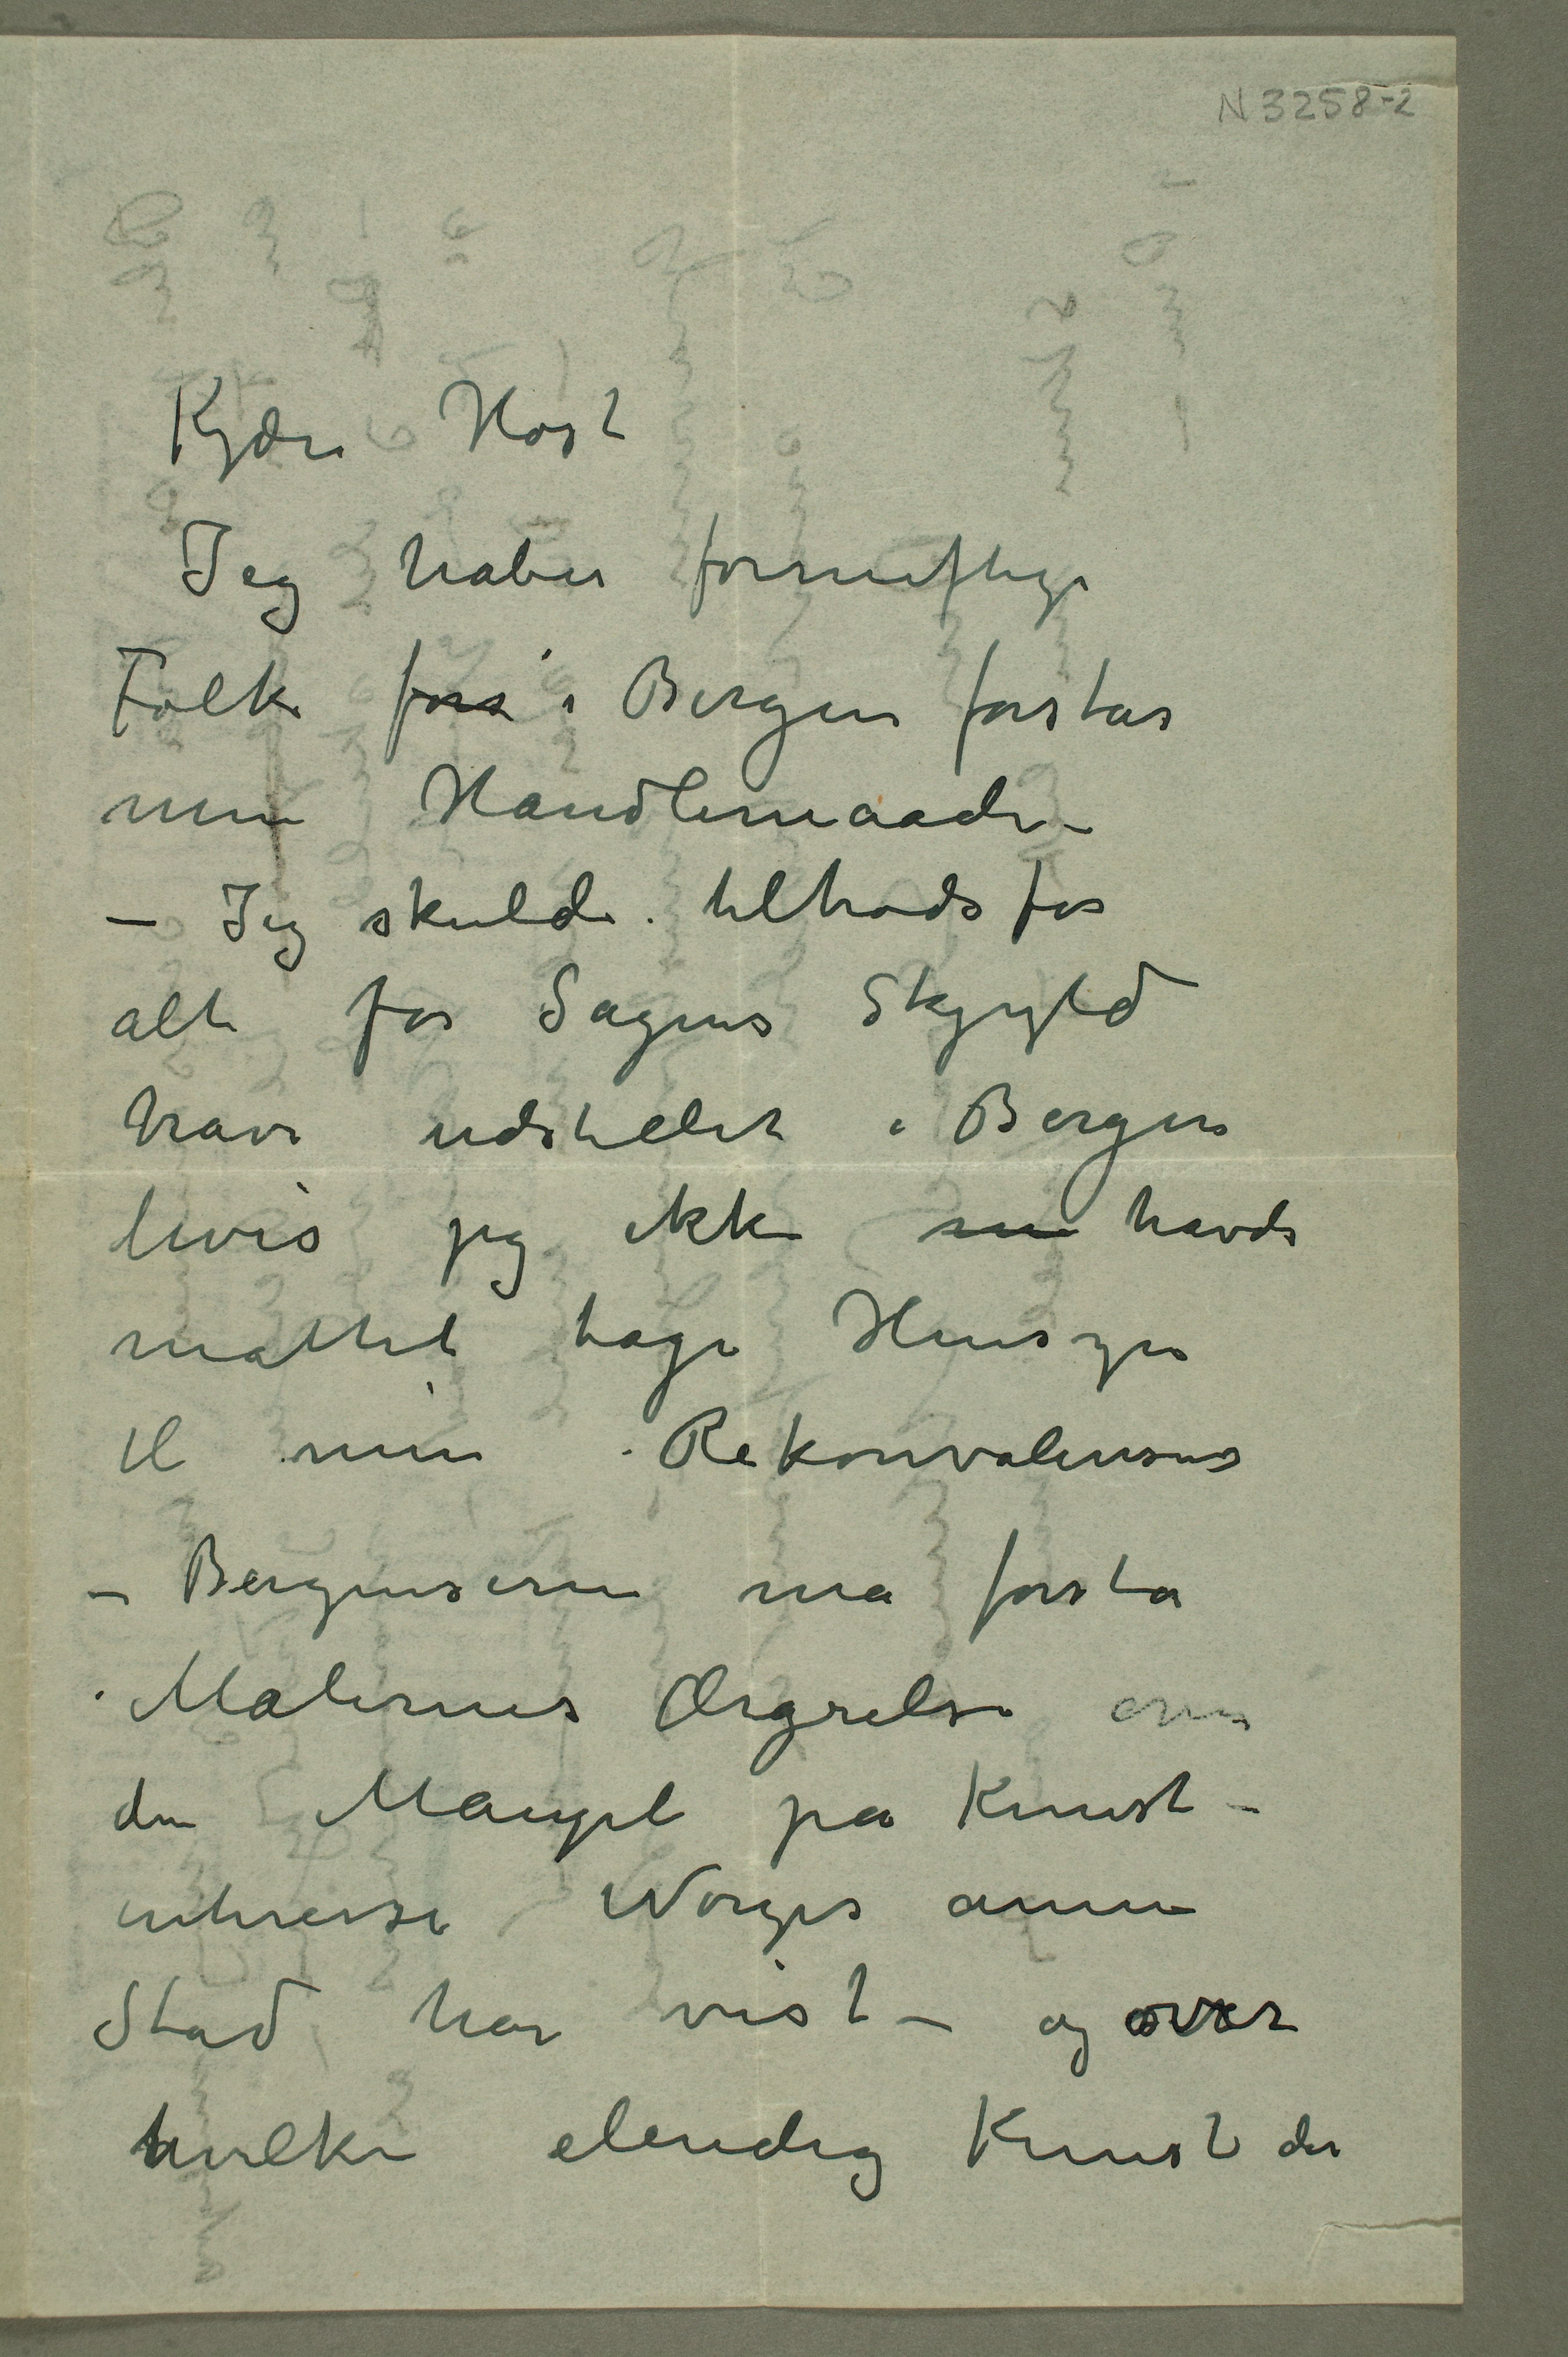 N 3258-2
Kjære Høst
Jeg haber fornuftige
Folk fors i Bergen forstår
min Handlemaade –
– Jeg skulde tiltrods for
alt for Sagens Skjyld
have udstillet i Bergen
hvis jeg ikke havde
måttet tage Hensyn
til min Rekonvalensens
– Bergenserne må forstå
Malernes Ærgrelse om
den Mangel på Kunst-
intresse Norges annen
Stad har vist – og over
hvilke elendig Kunst der